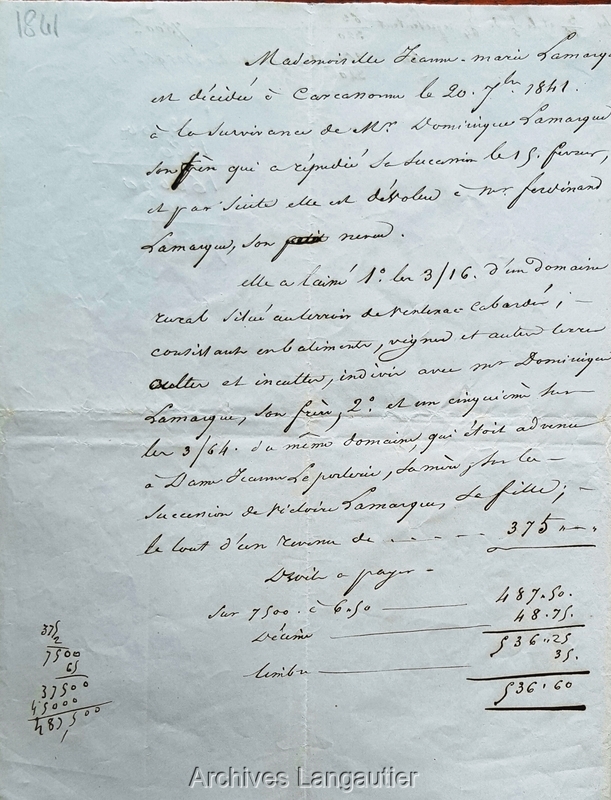 1841
Mademoiselle Jeanne-marie Lamarque
est décédée à Carcassonne le 20. 7bre 1841.
à la survivance de Mr. Dominique Lamarque
son frère qui a répudié sa succession le 15. février,
et par suite elle est dévolue à Mr. ferdinand
Lamarque, son petit neveu.
elle a laissé 1º. les 3/16. d'un domaine
rural situé au terroir de Ventenac Cabardès; -
consistant en batiments, vignes et autres terres
cultes et incultes, indivis avec mr Dominique
Lamarque, son frère, 2º. et un cinquième sur
les 3/64. du même domaine, qui étoit advenu
à Dame Jeanne Leporterie, sa mère, sur la -
succession de Victoire Lamarque, sa fille; -
le tout d'un revenu de - - - - - 375 " "
Droits à payer -
Sur 7500. à 6.50 487.50.
Décime 48.75.
536.25
timbre 35.
536.60
375
2
7500
65
37500
45000
487,500
Archives Langautier